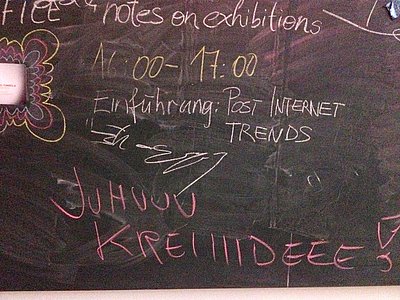 notes on exhibitions
16:00-17:00
Einführung: POST INTERNET
TRENDS
JUHUUU
KREIIIIDEEE!